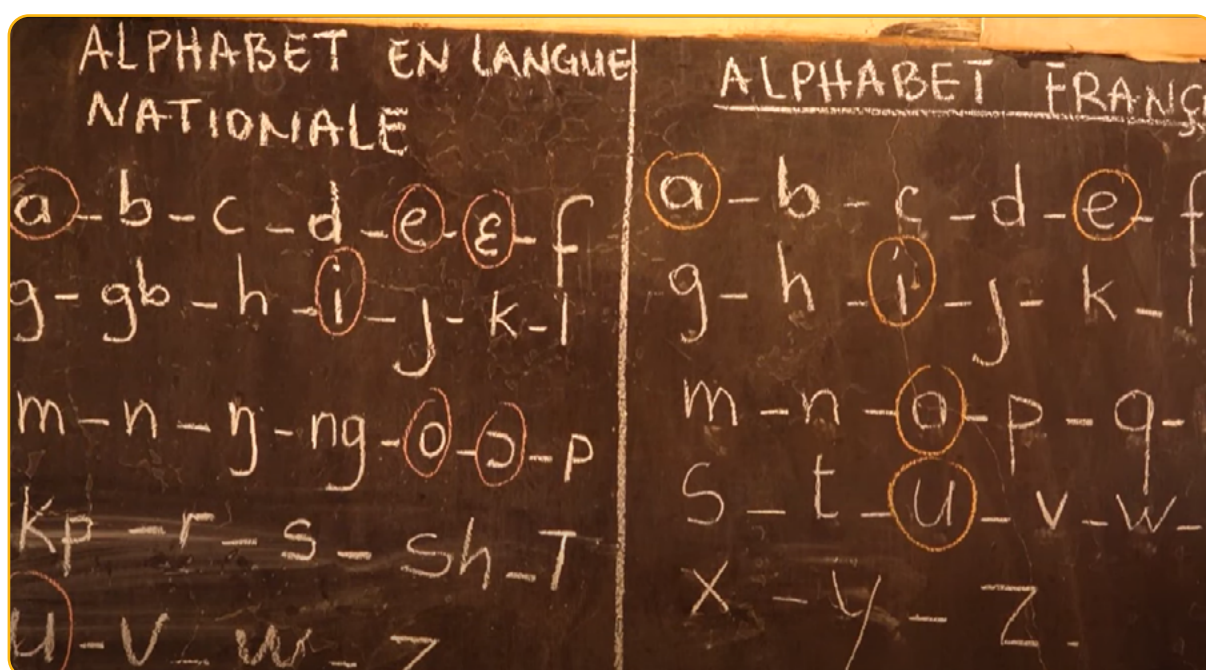 ALPHABET EN LANGUE
NATIONALE
a - b - c - d - e - ɛ - f
g - gb - h - i - j - k - l
m - n - ŋ - ng - o - ɔ - p
Kp - r - s - sh - T
u - v - w - z
ALPHABET FRANÇ
a - b - c - d - e - f
g - h - i - j - k - l
m - n - o - p - q -
S - t - u - v - w -
x - y - z -